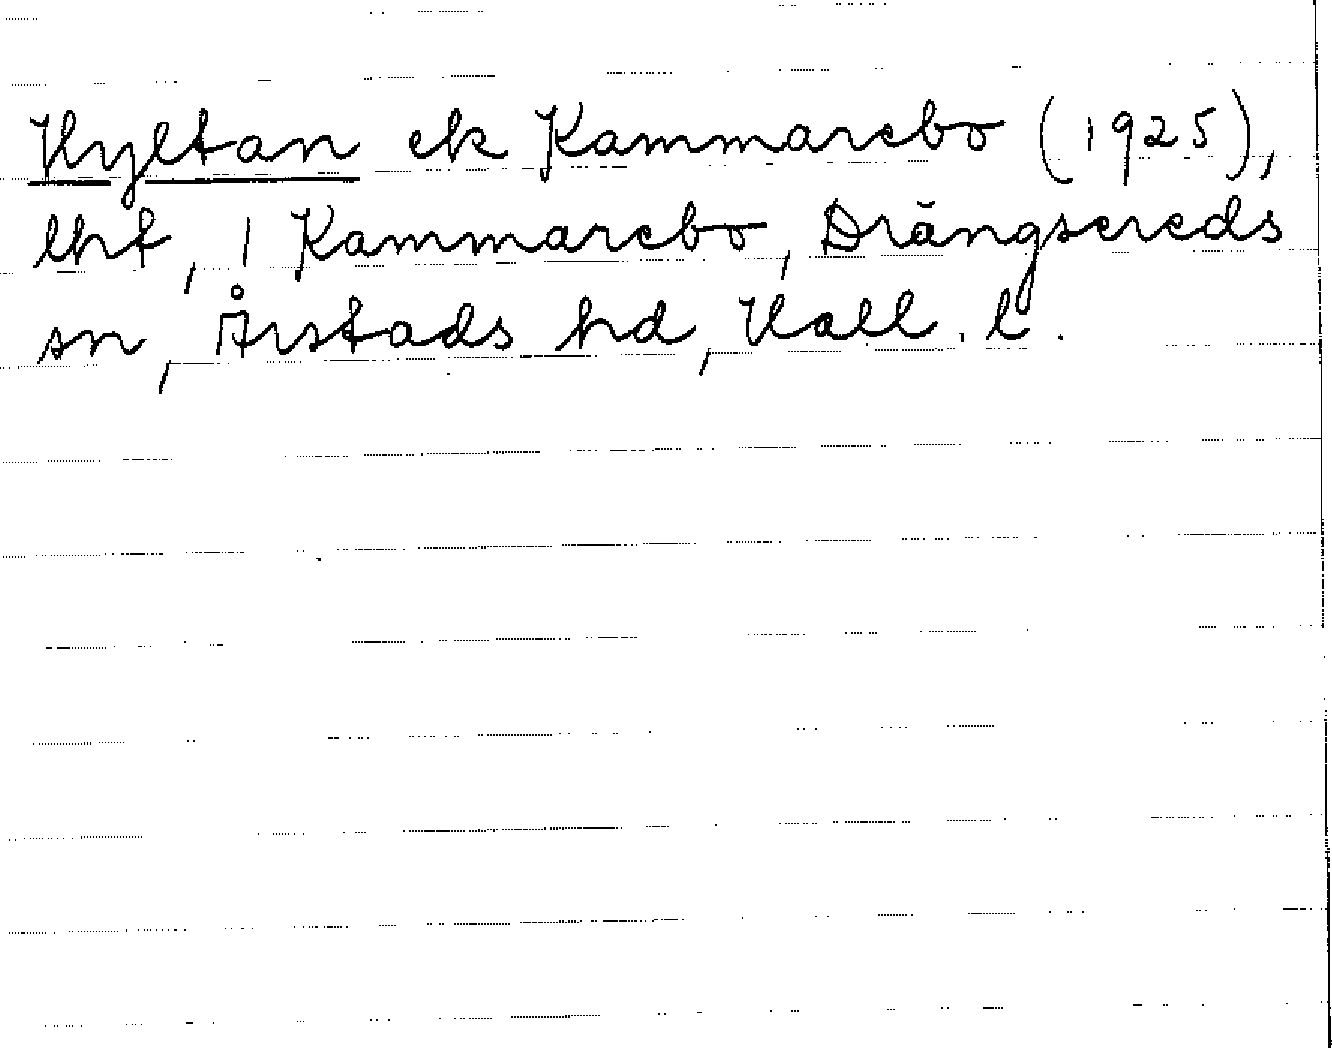 Hyltan ek Kammarebo (1925),
lht, 1 Kammarebo, Drängsereds
sn, Årstads hd, Hall. l.